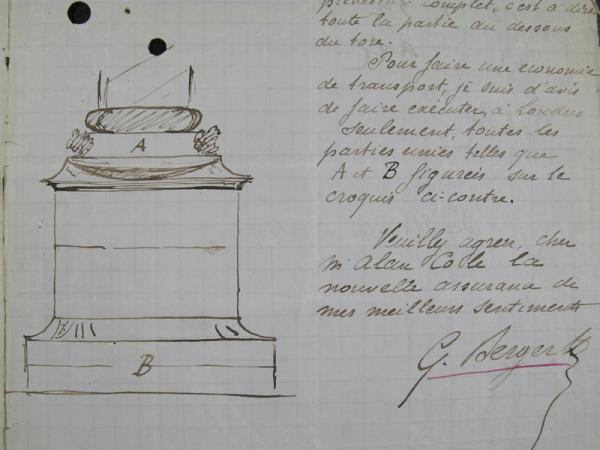 A
B
complet, c'est à dire
toute la partie au dessous
du tore.
Pour faire une economie
de transport, je suis d'avis
de faire exécuter, à Londres
seulement, toutes les
parties unies telles que
A et B figurées sur le
croquis ci-contre.
Veuillez agréer, cher
Mr Alan Cole la
nouvelle assurance de
mes meilleurs sentiments
G. Berger